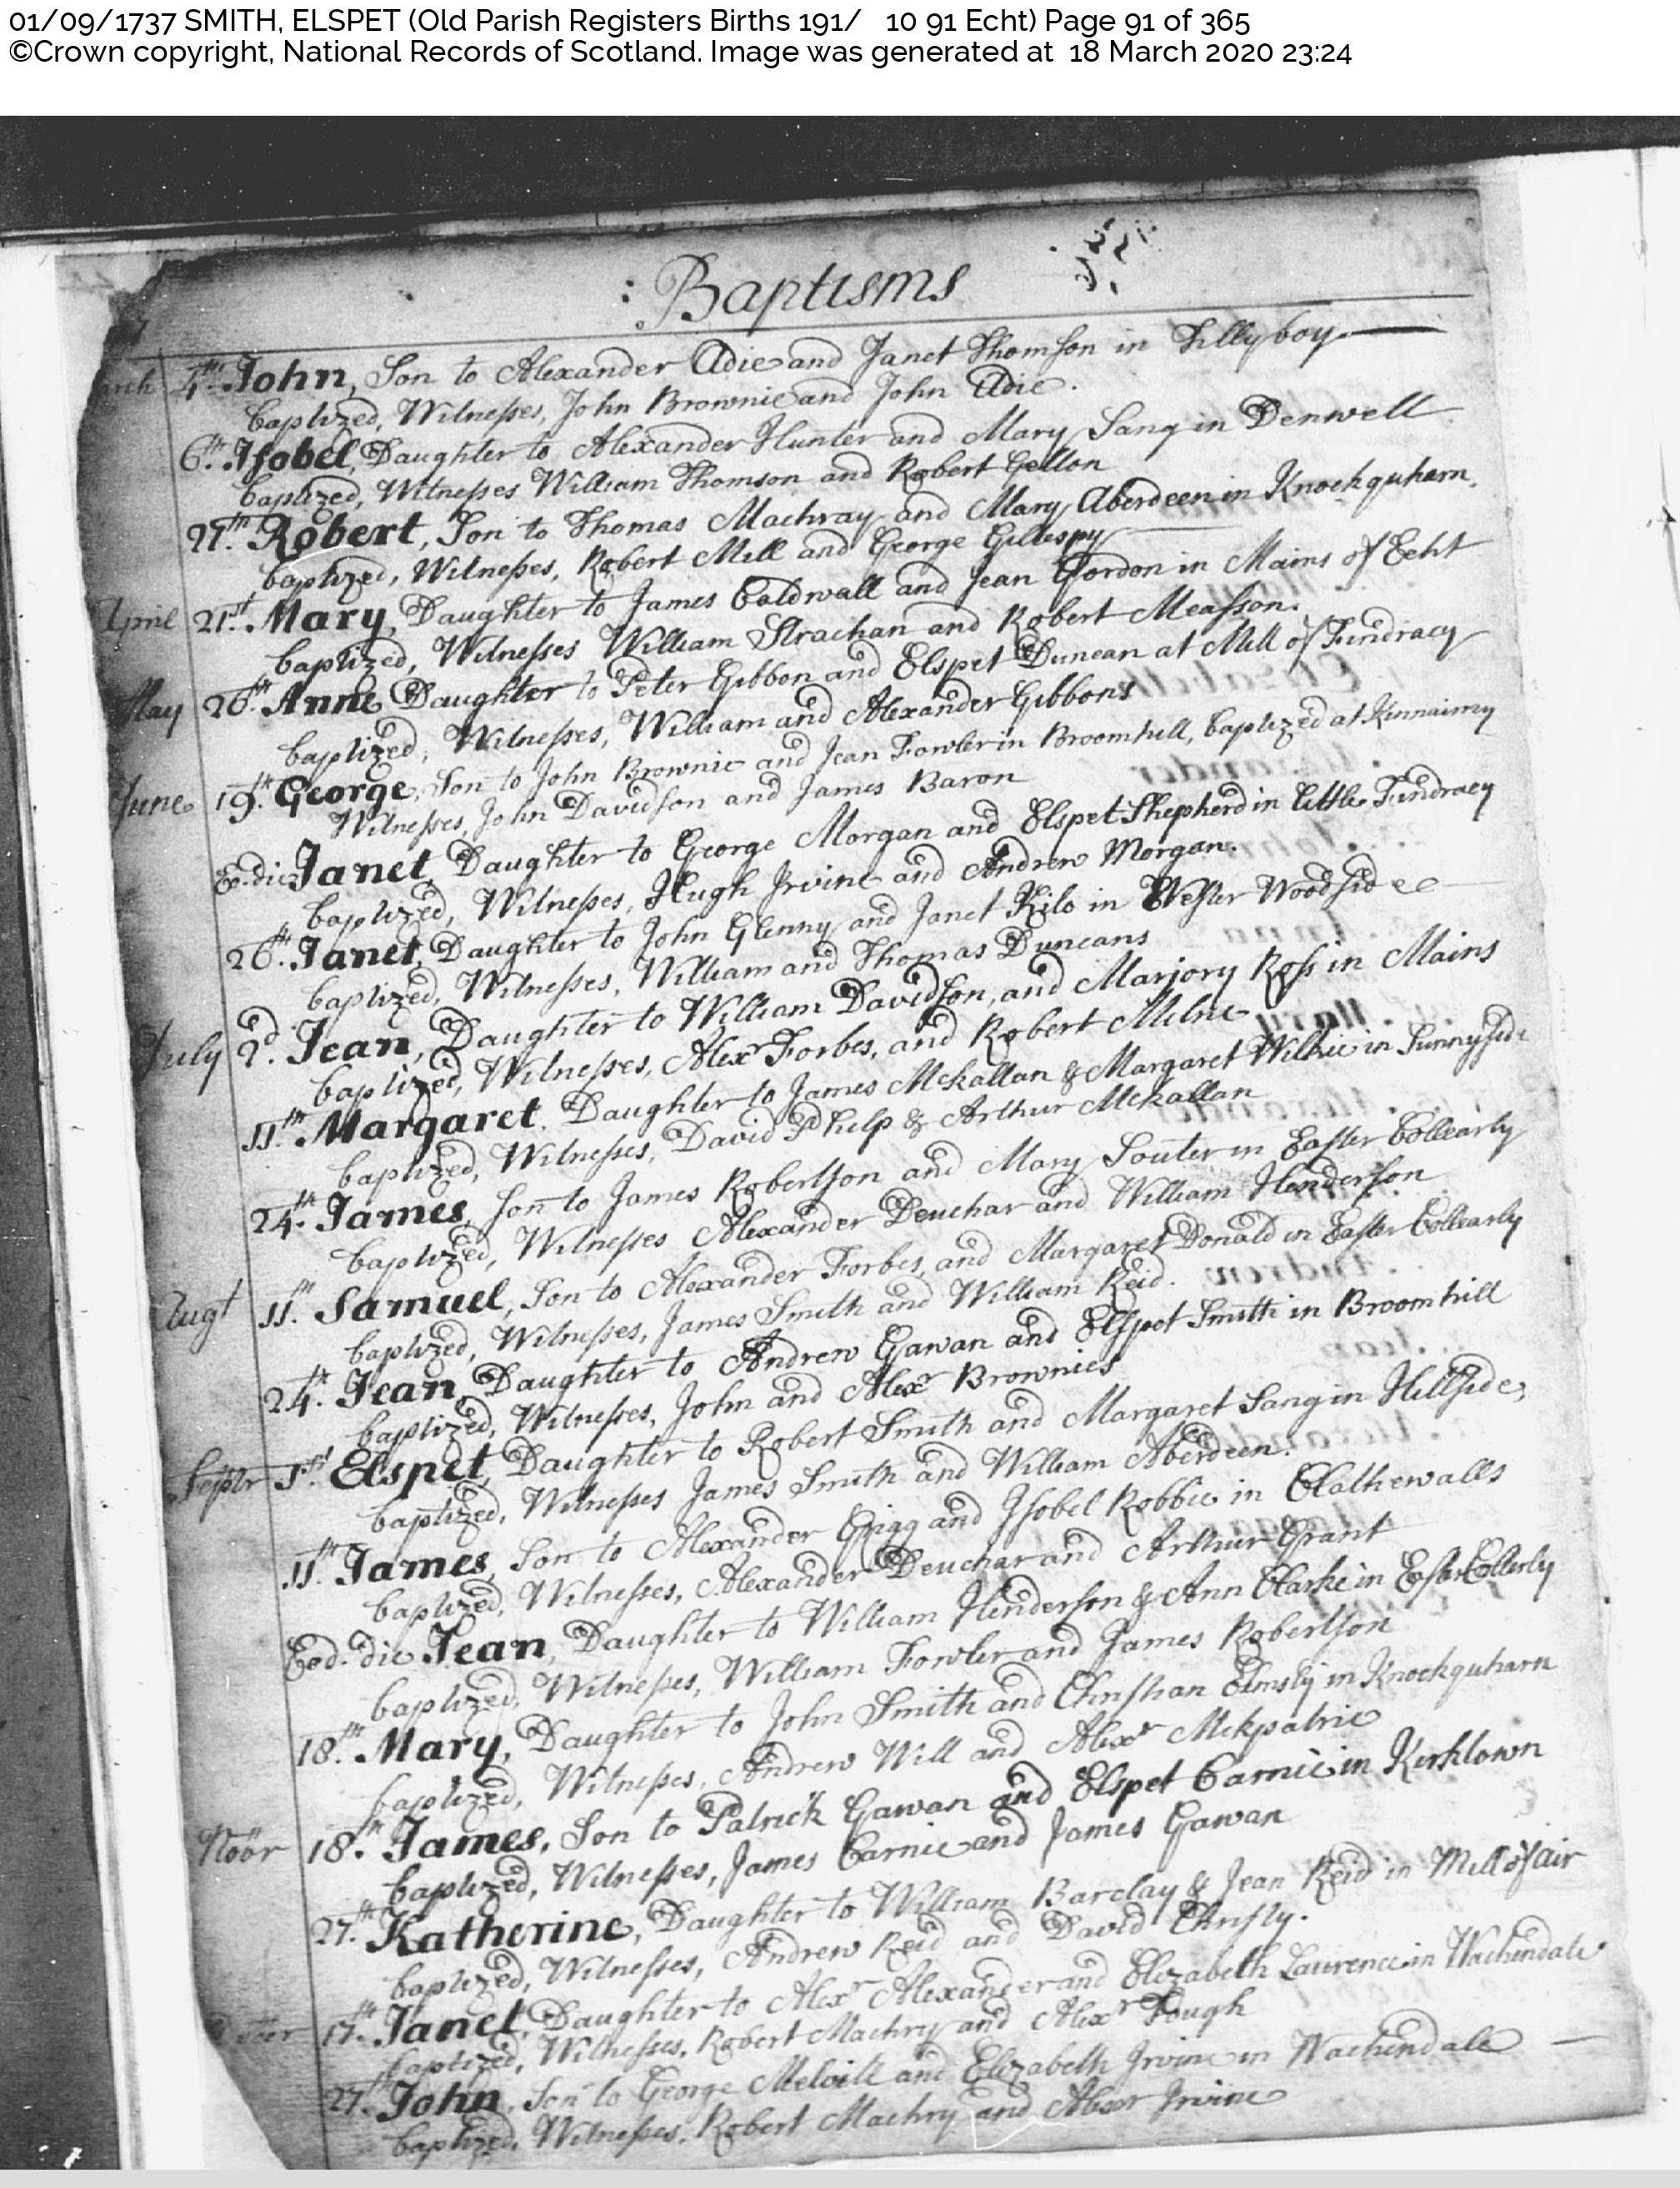 01/09/1737 SMITH, ELSPET (Old Parish Registers Births 191/ 10 91 Echt) Page 91 of 365
©Crown copyright, National Records of Scotland. Image was generated at 18 March 2020 23:24
: Baptisms
arch 4th John, Son to Alexander Adie and Janet Thomson in Tillyboy.
baptized, Witnesses, John Brownie and John Adie.
6th. Isobel, Daughter to Alexander Hunter and Mary Sang in Denwell
baptized, Witnesses William Thomson and Robert Gellon
27th. Robert, Son to Thomas Machray and Mary Aberdeen in Knockquharn.
baptized, Witnesses, Robert Mill and George Gillespy
April 21st. Mary, Daughter to James Coldwall and Jean Gordon in Mains of Echt
baptized, Witnesses William Strachan and Robert Measson.
May 26th Anne Daughter to Peter Gibbon and Elspet Duncan at Mill of Findracy
baptized, Witnesses, William and Alexander Gibbons
June 19th. George, Son to John Brownie and Jean Fowler in Broomhill, baptized at Kinnairny
Witnesses, John Davidson and James Baron
Eo. die Janet, Daughter to George Morgan and Elspet Shepherd in Little Findracy
baptized, Witnesses, Hugh Irvine and Andrew Morgan.
26th. Janet, Daughter to John Glenny and Janet Kilo in Wester Woodside
baptized, Witnesses, William and Thomas Duncans
July 2d. Jean, Daughter to William Davidson, and Marjory Ross in Mains
baptized, Witnesses, Alexr Forbes, and Robert Milne
11th. Margaret. Daughter to James Mckallan & Margaret Wilkie in Sunnyside
baptized, Witnesses, David Phelp & Arthur Mckallan
24th. James, Son to James Robertson and Mary Souter in Easter Collearly
baptized, Witnesses Alexander Deuchar and William Henderson
Augt 11th. Samuel, Son to Alexander Forbes, and Margaret Donald in Easter Collearly
baptized, Witnesses, James Smith and William Reid.
24th. Jean, Daughter to Andrew Gawan and Elspet Smith in Broomhill
baptized, Witnesses, John and Alexr Brownies
Septr 1st. Elspet, Daughter to Robert Smith and Margaret Sang in Hillside,
baptized, Witnesses James Smith and William Aberdeen.
11th James, Son to Alexander Grigg and Isobel Robbie in Clathewalls
baptized, Witnesses, Alexander Deuchar and Arthur Grant
Eod. die Jean, Daughter to William Henderson & Ann Clarke in Easter Collerly
baptized, Witnesses, William Fowler and James Robertson
18th. Mary, Daughter to John Smith and Christian Elmsly in Knockquharn
baptized, Witnesses, Andrew Will and Alexr Mckpatrie
Noor 18th. James, Son to Patrick Gawan and Elspet Carnie in Kirktown
baptized, Witnesses, James Carnie and James Gawan
27th. Katherine, Daughter to William Barclay & Jean Reid in Mill of air
baptized, Witnesses, Andrew Reid and David Christy.
17th. Janet, Daughter to Alexr Alexander and Elizabeth Laurence in Wachendale
baptized, Witnesses, Robert Machry and Alexr Tough
27th. John, Son to George Melvill and Elizabeth Irvine in Wachendale
baptized, Witnesses, Robert Machry and Irvine